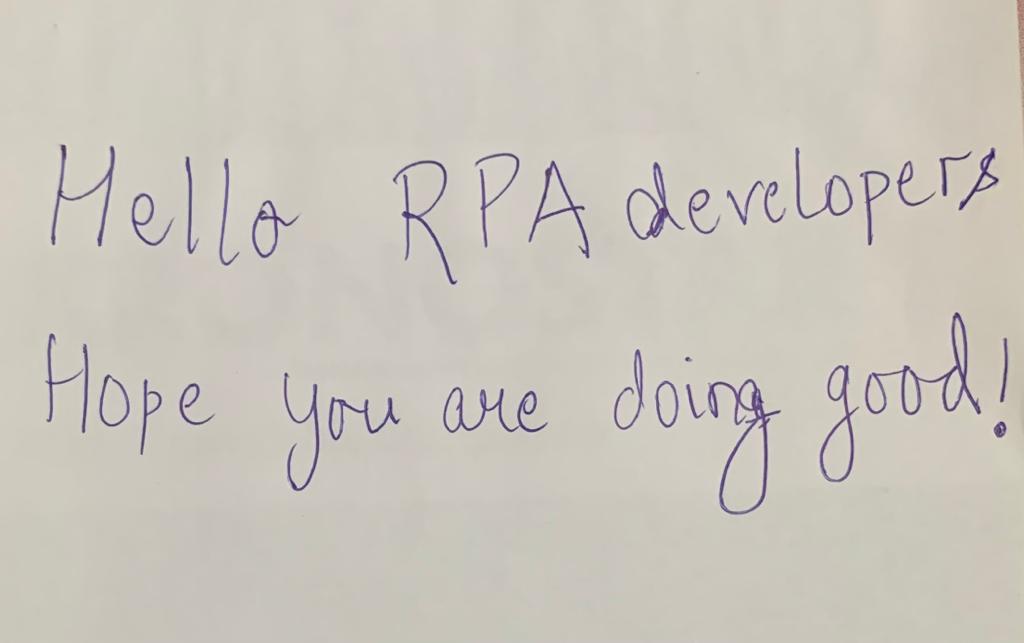 Hello RPA developers
Hope you are doing good!